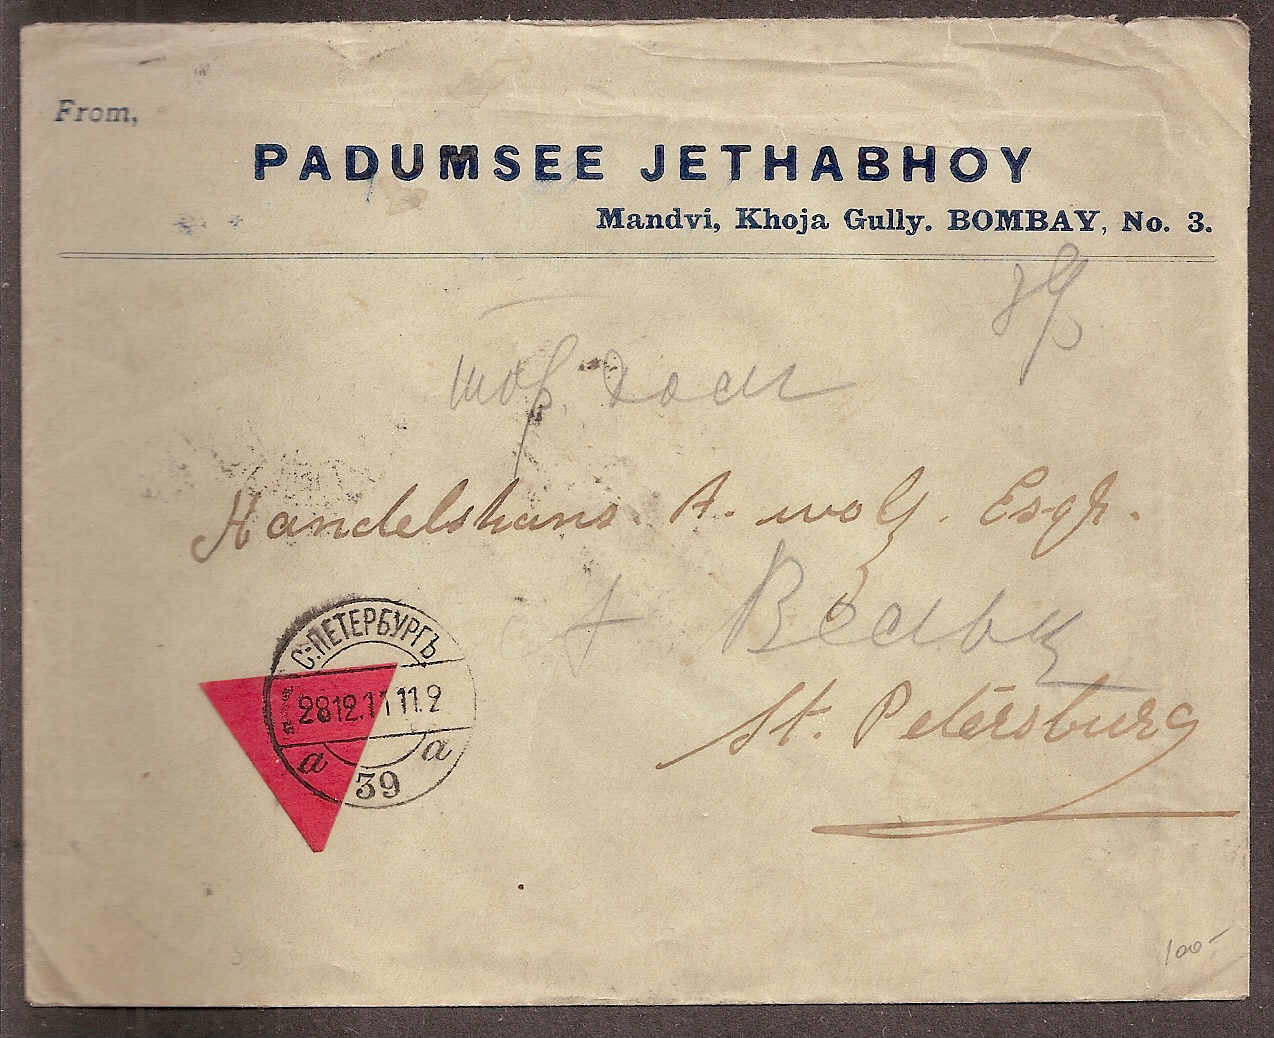 From,
PADUMSEE JETHABHOY
Mandvi, Khoja Gully. BOMBAY, No. 3.
Handelshans A. Wolf. Esqr.
А Вольф
St. Petersburg
С.-ПЕТЕРБУРГЪ
28 12.11 11.2
a a
39
100-